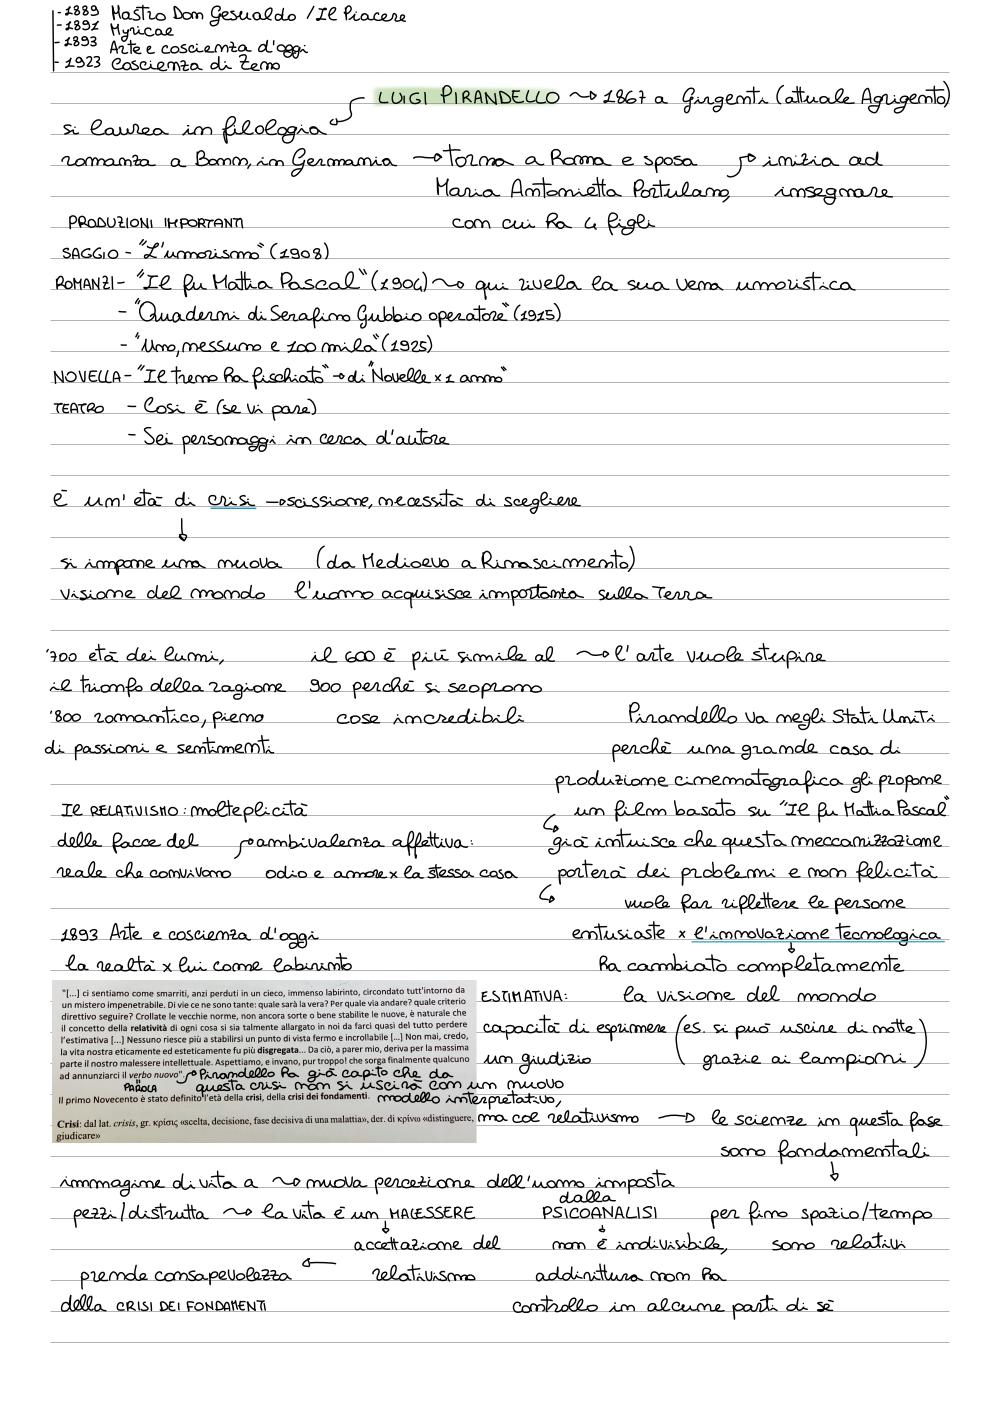 - 1889 Mastro Don Gesualdo / Il Piacere
- 1891 Myricae
- 1893 Arte e coscienza d'oggi
- 1923 Coscienza di Zeno
LUIGI PIRANDELLO ~> 1867 a Girgenti (attuale Agrigento)
si laurea in filologia
romanza a Bonn, in Germania → torna a Roma e sposa → inizia ad
Maria Antonietta Portulano, insegnare
PRODUZIONI IMPORTANTI con cui ha 4 figli
SAGGIO - "L'umorismo" (1908)
ROMANZI - "Il fu Mattia Pascal" (1904) ~> qui rivela la sua vena umoristica
- "Quaderni di Serafino Gubbio operatore" (1915)
- "Uno, nessuno e 100 mila" (1925)
NOVELLA - "Il treno ha fischiato" → di "Novelle x 1 anno"
TEATRO - Così è (se vi pare)
- Sei personaggi in cerca d'autore
È un'età di crisi → scissione, necessità di scegliere
↓
si impone una nuova (da Medioevo a Rinascimento)
visione del mondo l'uomo acquisisce importanza sulla Terra
'700 età dei lumi, il 600 è più simile al ~> l'arte vuole stupire
il trionfo della ragione 900 perchè si scoprono
'800 romantico, pieno cose incredibili Pirandello va negli Stati Uniti
di passioni e sentimenti perchè una grande casa di
produzione cinematografica gli propone
Il RELATIVISMO: molteplicità un film basato su "Il fu Mattia Pascal"
delle facce del → ambivalenza affettiva: già intuisce che questa meccanizzazione
reale che convivono odio e amore x la stessa cosa porterà dei problemi e non felicità
vuole far riflettere le persone
1893 Arte e coscienza d'oggi entusiaste x l'innovazione tecnologica
la realtà x lui come labirinto ha cambiato completamente
"[...] ci sentiamo come smarriti, anzi perduti in un cieco, immenso labirinto, circondato tutt'intorno da
un mistero impenetrabile. Di vie ce ne sono tante: quale sarà la vera? Per quale via andare? quale criterio
direttivo seguire? Crollate le vecchie norme, non ancora sorte o bene stabilite le nuove, è naturale che
il concetto della relatività di ogni cosa si sia talmente allargato in noi da farci quasi del tutto perdere
l'estimativa [...] Nessuno riesce più a stabilirsi un punto di vista fermo e incrollabile [...] Non mai, credo,
la vita nostra eticamente ed esteticamente fu più disgregata... Da ciò, a parer mio, deriva per la massima
parte il nostro malessere intellettuale. Aspettiamo, e invano, pur troppo! che sorga finalmente qualcuno
ad annunziarci il verbo nuovo"
ESTIMATIVA: la visione del mondo
capacità di esprimere (es. si può uscire di notte
un giudizio grazie ai lampioni)
Pirandello ha già capito che da
PAROLA questa crisi non si uscirà con un nuovo
Il primo Novecento è stato definito l'età della crisi, della crisi dei fondamenti. modello interpretativo,
Crisi: dal lat. crisis, gr. κρίσις «scelta, decisione, fase decisiva di una malattia», der. di κρίνω «distinguere, ma col relativismo → le scienze in questa fase
giudicare»
sono fondamentali
immagine di vita a ~> nuova percezione dell'uomo imposta
dalla
pezzi/distrutta ~> la vita è un MALESSERE PSICOANALISI per fino spazio/tempo
accettazione del non è indivisibile, sono relativi
prende consapevolezza ← relativismo addirittura non ha
della CRISI DEI FONDAMENTI controllo in alcune parti di sè